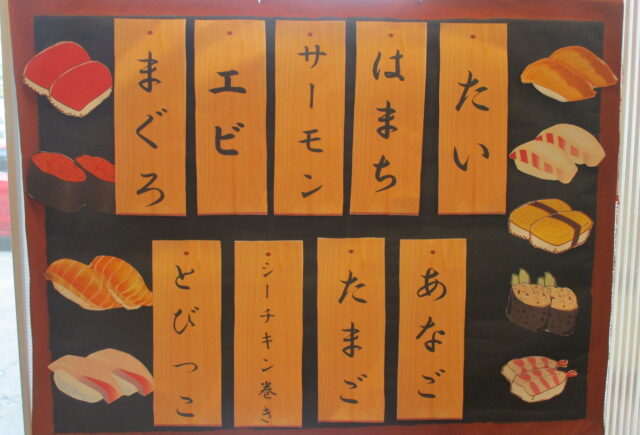 たい
はまち
サーモン
エビ
まぐろ
あなご
たまご
シーチキン巻き
とびっこ